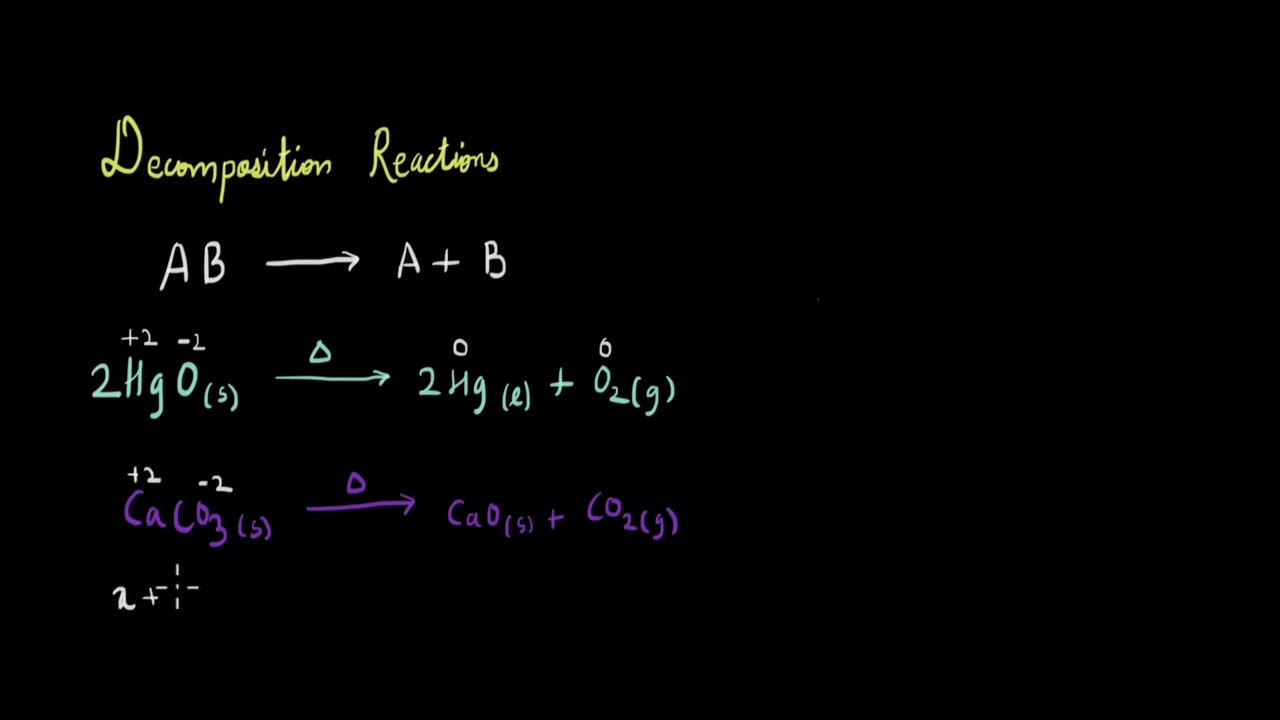 Decomposition Reactions
AB ⟶ A + B
+2 -2 0 0
2HgO(s) Δ⟶ 2Hg(l) + O2(g)
+2 -2
CaCO3(s) Δ⟶ CaO(s) + CO2(g)
x +